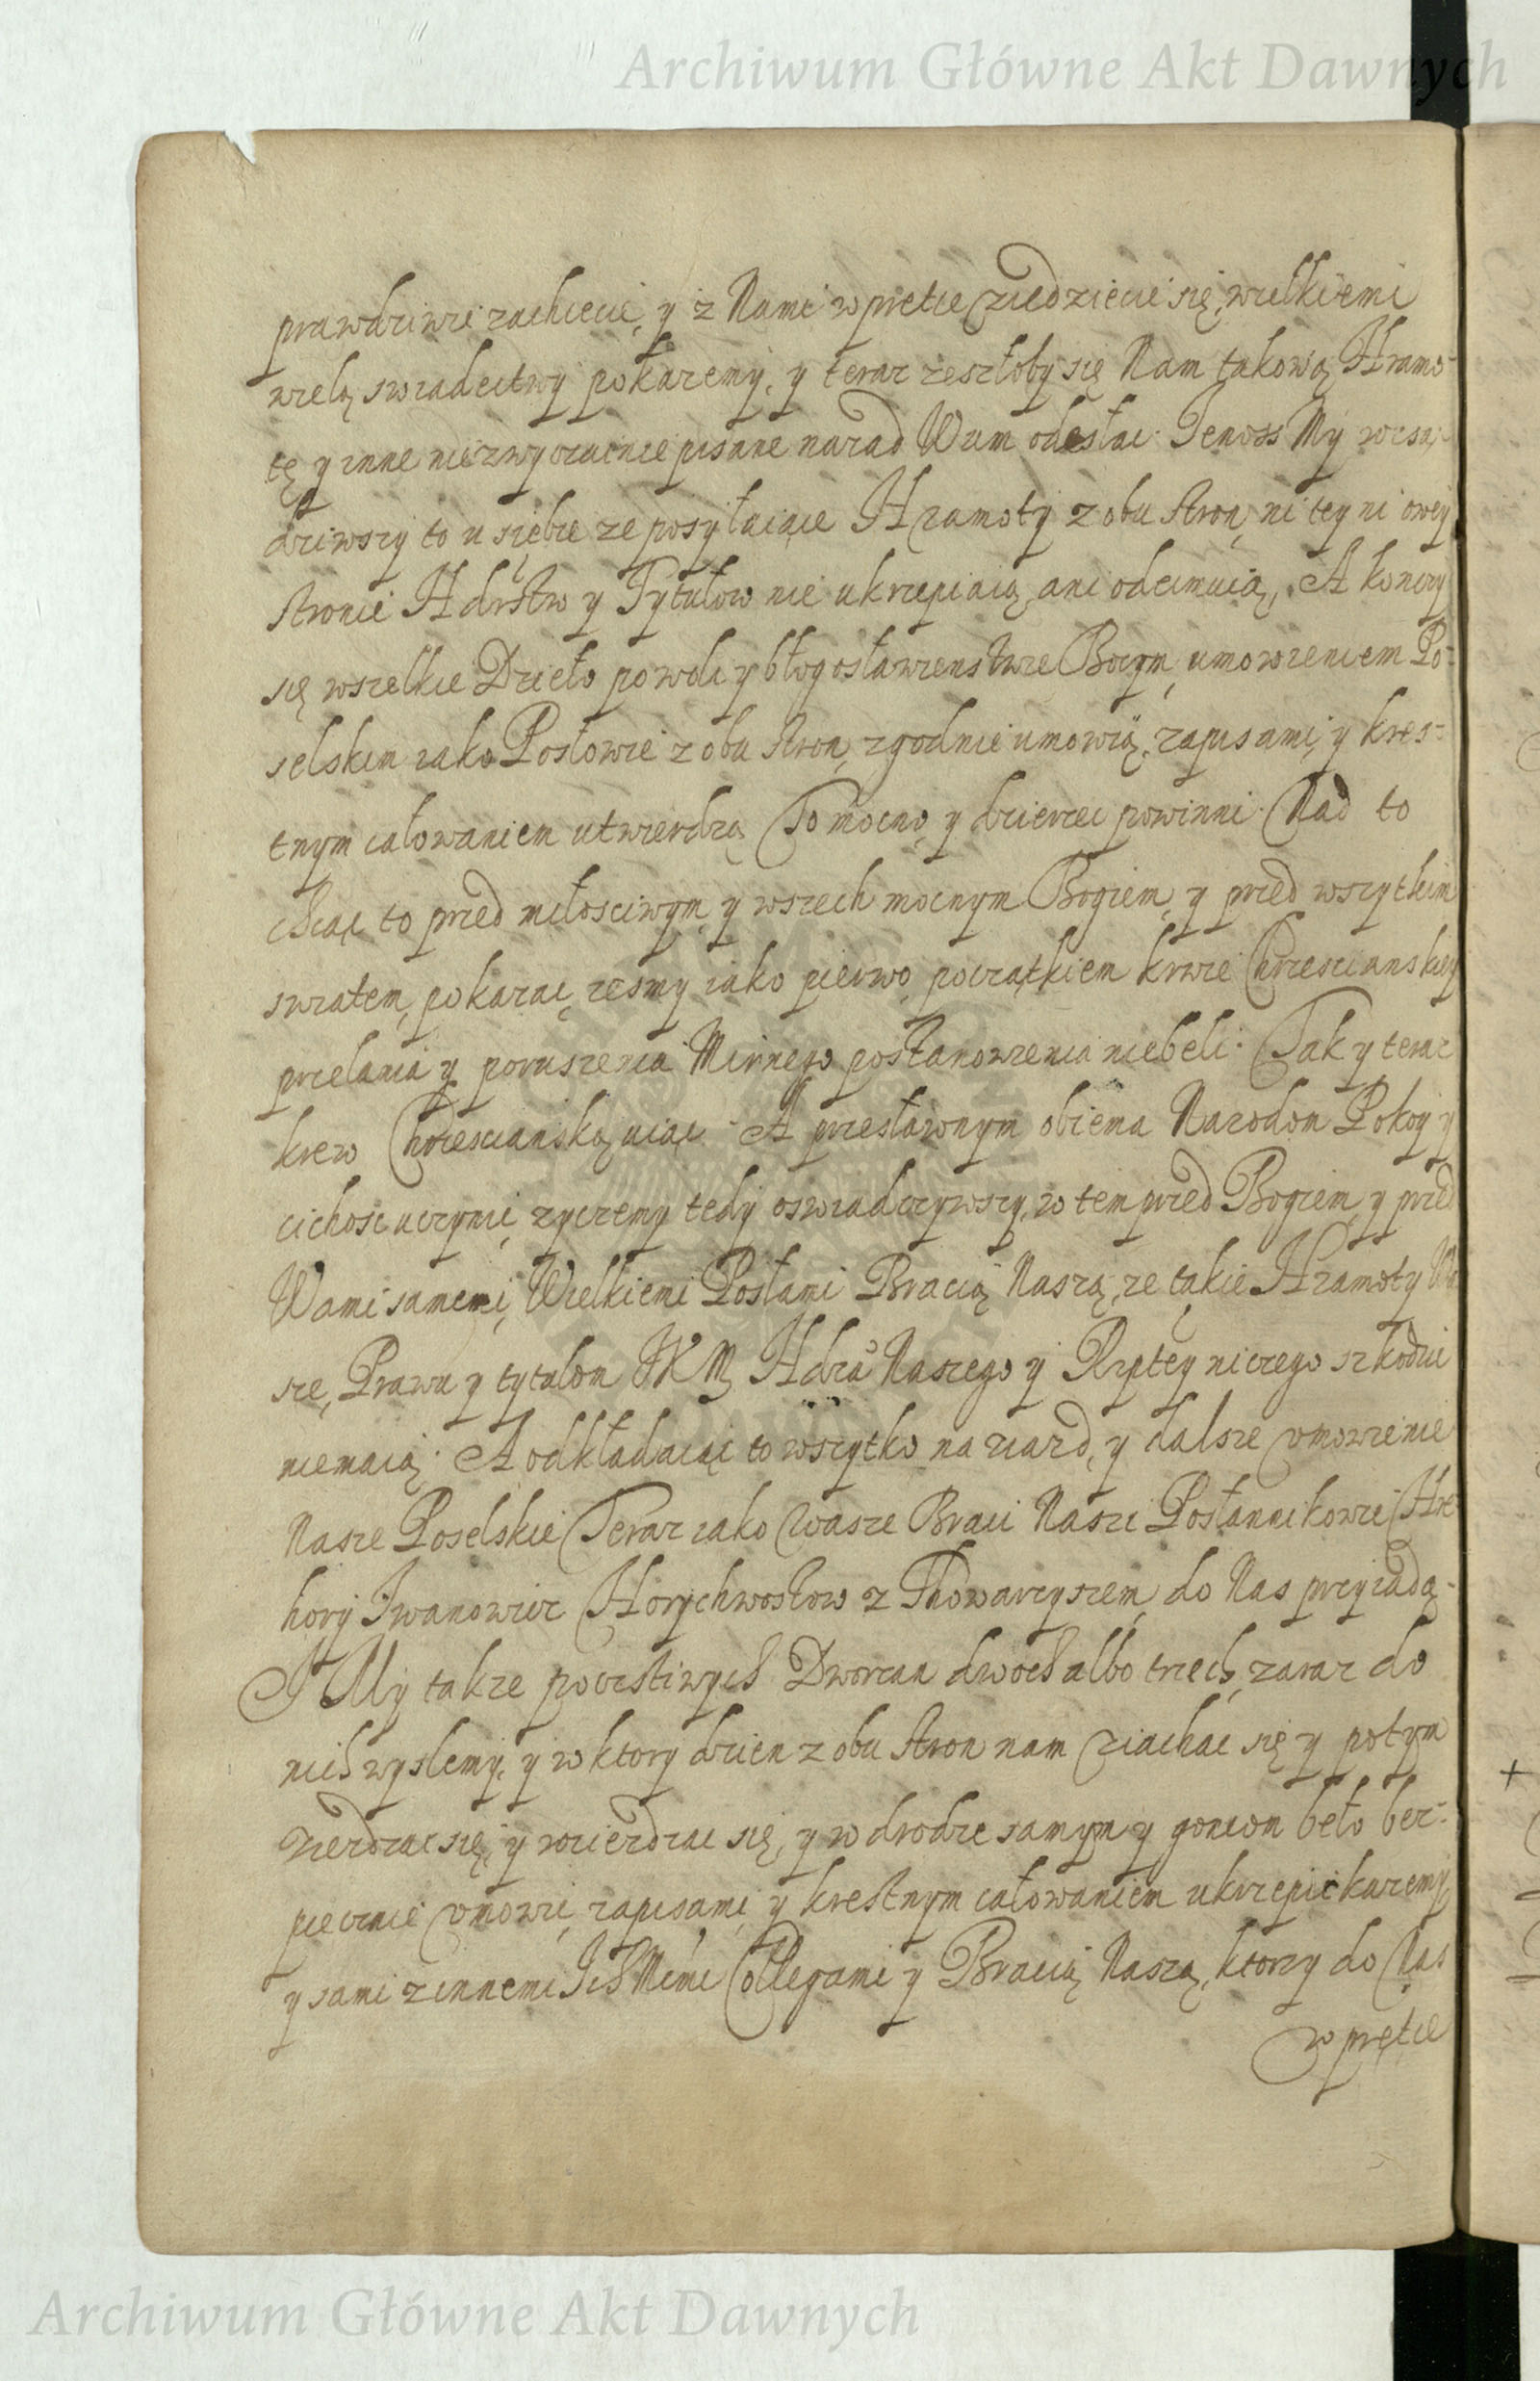 Archiwum Główne Akt Dawnych
prawdziwie zachcecie, y z Nami w prętce ziedziecie się, wielkiemi
wielą swiadectwy pokazemy, y teraz zeszłoby się Nam takową Hramo-
tę y inne niezwyczainie pisane nazad Wam odesłac. Jenoss My wsą-
dziwszy to u siebie ze posyłaiące Hramoty z obu stron, ni tey ni owey
stronie Hdrstw y Tytułow nie ukrzepiaią ani odeimuią, A konczy
się wszelkie Dzieło po woli y błogosławienstwie Bozym, umowieniem Po-
selskim iako Posłowie z obu stron, zgodnie umowią, zapisami, y kres-
tnym całowaniem utwierdzą To mocno, y dzierzec powinni. Nad to
chcąc to przed miłosciwym, y wszech mocnym Bogiem, y przed wszytkim
swiatem, pokazac, zesmy iako pierwo, początkiem krwie Chrzescianskiey
przelania y poruszenia Mirnego postanowienia niebeli. Tak y teraz
krew Chrzescianską uiąc. A przesławnym obiema Narodom Pokoy y
cichosc uczynic, zyczemy tedy oswiadczywszy, w tem przed Bogiem, y przed
Wami samemi, Wielkiemi Posłami Bracią Naszą, ze takie Hramoty Wa
sze, Prawu y tytułom JKM Hdra Naszego y Rzptey niczego szkodzic
niemaią. A odkładaiąc to wszytko na ziazd, y dalsze umowienie
Nasze Poselskie Teraz iako Wasze Braci Naszi Posłannikowie Hre
hory Iwanowicz Horychwostow z Thowarzyszem, do Nas przyiadą-
I My takze poczstiwych Dworzan dwoch albo trzech, zaraz do
nich wyslemy, y w ktory dzien z obu stron nam ziachac się y potym
zierdzac się, y wzierdzac się, y w drodze samym y goncom beło bez-
piecznie umowic, zapisami, y krestnym całowaniem ukrzepic kazemy,
y sami z innemi IchMcmi Collegami y Bracią Naszą, ktorzy do Nas
w prętce
Archiwum Główne Akt Dawnych